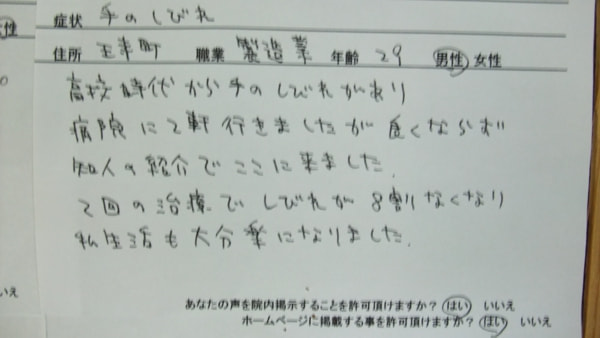 症状 手のしびれ
住所 玉東町 職業 製造業 年齢 29 男性 女性
高校時代から手のしびれがあり
病院に2軒行きましたが良くならず
知人の紹介でここに来ました.
2回の治療でしびれが8割なくなり
私生活も大分楽になりました.
あなたの声を院内掲示することを許可頂けますか? はい いいえ
ホームページに掲載する事を許可頂けますか? はい いいえ
性
いえ